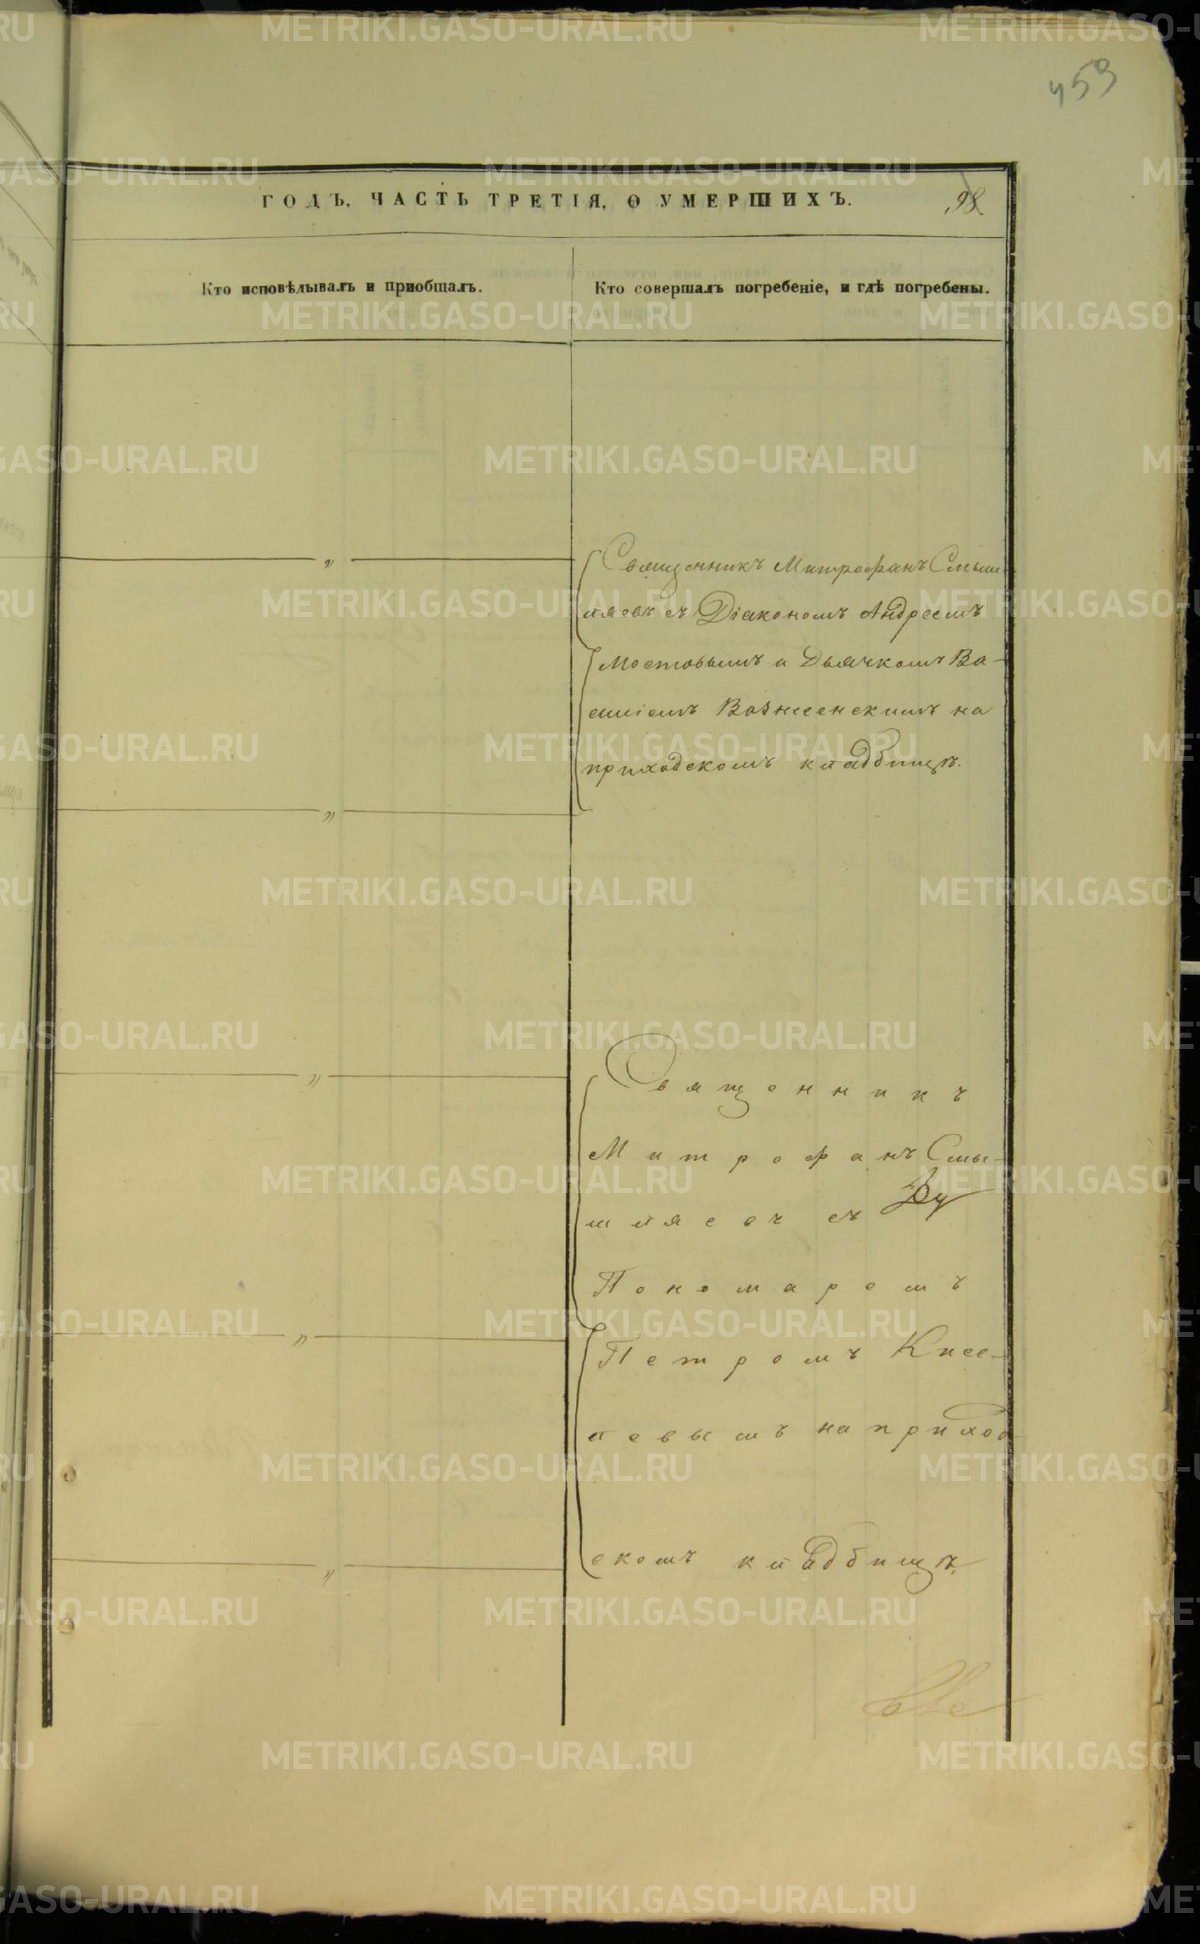 459
ГОДЪ, ЧАСТЬ ТРЕТІЯ, О УМЕРШИХЪ.
98.
Кто исповѣдывалъ и пріобщалъ.
Кто совершалъ погребеніе, и гдѣ погребены.
Священникъ Митрофанъ Смыш
ляевъ съ Діакономъ Андреемъ
Мостовымъ и Дьячкомъ Ва-
силіемъ Вознесенскимъ на
приходскомъ кладбищѣ.
Священникъ
Митрофанъ Смы-
шляевъ съ
Пономаремъ
Петромъ Кисе-
левымъ на приход
скомъ кладбищѣ.
METRIKI.GASO-URAL.RU